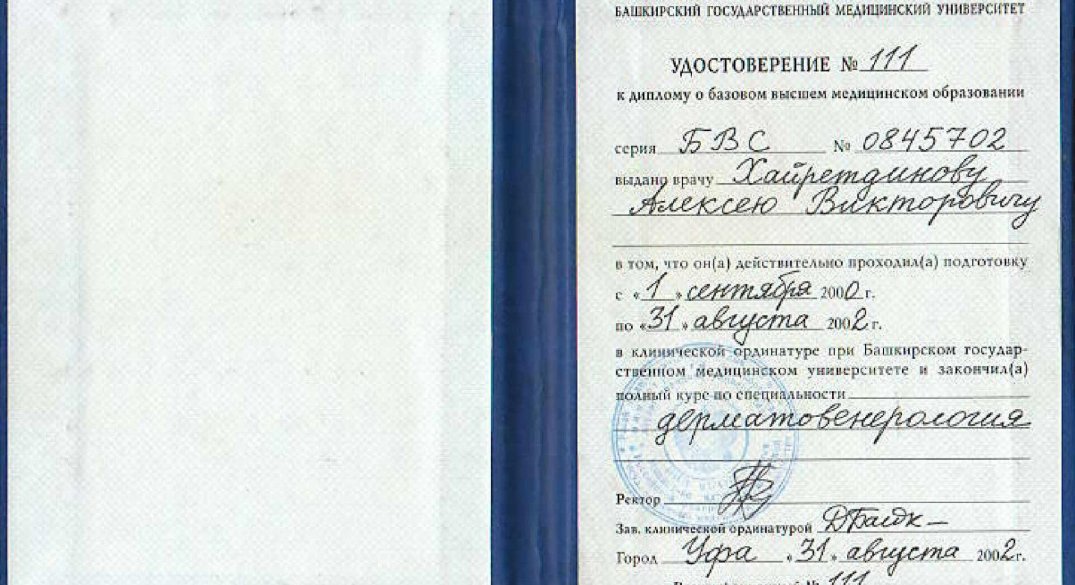 БАШКИРСКИЙ ГОСУДАРСТВЕННЫЙ МЕДИЦИНСКИЙ УНИВЕРСИТЕТ
УДОСТОВЕРЕНИЕ № 111
к диплому о базовом высшем медицинском образовании
серия БВС № 0845702
выдано врачу Хайретдинову
Алексею Викторовичу
в том, что он(а) действительно проходил(а) подготовку
с «1» сентября 2000 г.
по «31» августа 2002 г.
в клинической ординатуре при Башкирском государ-
ственном медицинском университете и закончил(а)
полный курс по специальности
дерматовенерология
Ректор
Зав. клинической ординатурой
Город Уфа «31» августа 2002 г.
111